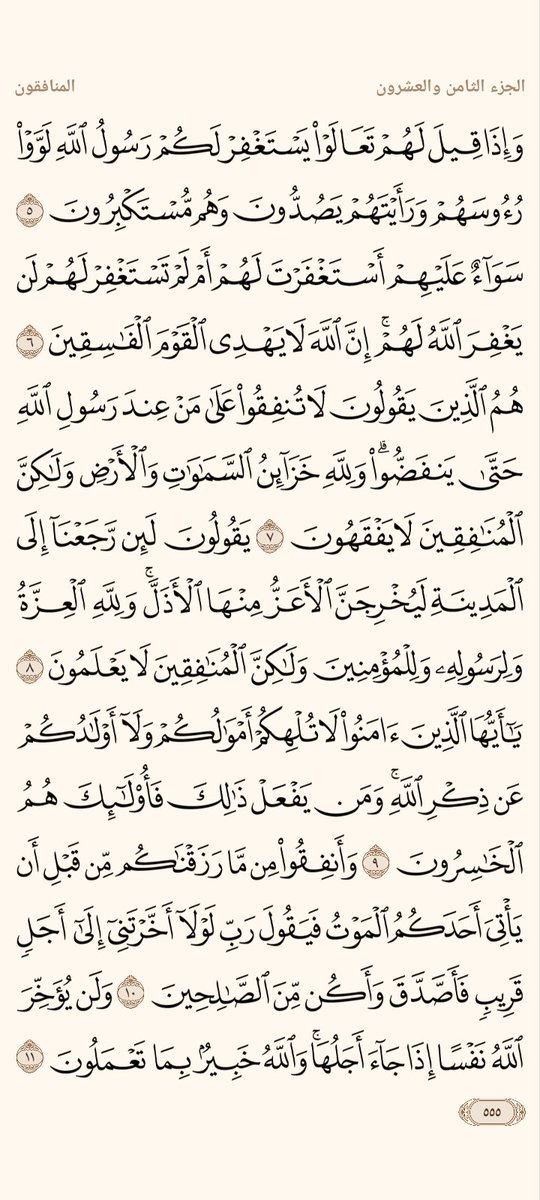 الجزء الثامن والعشرون المنافقون
وَإِذَا قِيلَ لَهُمْ تَعَالَوْا۟ يَسْتَغْفِرْ لَكُمْ رَسُولُ ٱللَّهِ لَوَّوْا۟
رُءُوسَهُمْ وَرَأَيْتَهُمْ يَصُدُّونَ وَهُم مُّسْتَكْبِرُونَ ٥
سَوَآءٌ عَلَيْهِمْ أَسْتَغْفَرْتَ لَهُمْ أَمْ لَمْ تَسْتَغْفِرْ لَهُمْ لَن
يَغْفِرَ ٱللَّهُ لَهُمْ ۚ إِنَّ ٱللَّهَ لَا يَهْدِى ٱلْقَوْمَ ٱلْفَـٰسِقِينَ ٦
هُمُ ٱلَّذِينَ يَقُولُونَ لَا تُنفِقُوا۟ عَلَىٰ مَنْ عِندَ رَسُولِ ٱللَّهِ
حَتَّىٰ يَنفَضُّوا۟ ۗ وَلِلَّهِ خَزَآئِنُ ٱلسَّمَـٰوَٰتِ وَٱلْأَرْضِ وَلَـٰكِنَّ
ٱلْمُنَـٰفِقِينَ لَا يَفْقَهُونَ ٧ يَقُولُونَ لَئِن رَّجَعْنَآ إِلَى
ٱلْمَدِينَةِ لَيُخْرِجَنَّ ٱلْأَعَزُّ مِنْهَا ٱلْأَذَلَّ ۚ وَلِلَّهِ ٱلْعِزَّةُ
وَلِرَسُولِهِۦ وَلِلْمُؤْمِنِينَ وَلَـٰكِنَّ ٱلْمُنَـٰفِقِينَ لَا يَعْلَمُونَ ٨
يَـٰٓأَيُّهَا ٱلَّذِينَ ءَامَنُوا۟ لَا تُلْهِكُمْ أَمْوَٰلُكُمْ وَلَآ أَوْلَـٰدُكُمْ
عَن ذِكْرِ ٱللَّهِ ۚ وَمَن يَفْعَلْ ذَٰلِكَ فَأُو۟لَـٰٓئِكَ هُمُ
ٱلْخَـٰسِرُونَ ٩ وَأَنفِقُوا۟ مِن مَّا رَزَقْنَـٰكُم مِّن قَبْلِ أَن
يَأْتِىَ أَحَدَكُمُ ٱلْمَوْتُ فَيَقُولَ رَبِّ لَوْلَآ أَخَّرْتَنِىٓ إِلَىٰٓ أَجَلٍ
قَرِيبٍ فَأَصَّدَّقَ وَأَكُن مِّنَ ٱلصَّـٰلِحِينَ ١٠ وَلَن يُؤَخِّرَ
ٱللَّهُ نَفْسًا إِذَا جَآءَ أَجَلُهَا ۚ وَٱللَّهُ خَبِيرٌۢ بِمَا تَعْمَلُونَ ١١
٥٥٥